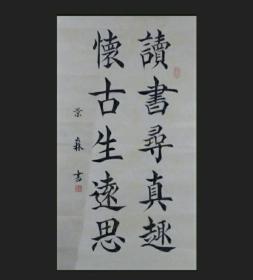 讀書尋真趣
懷古生遠思
業森書